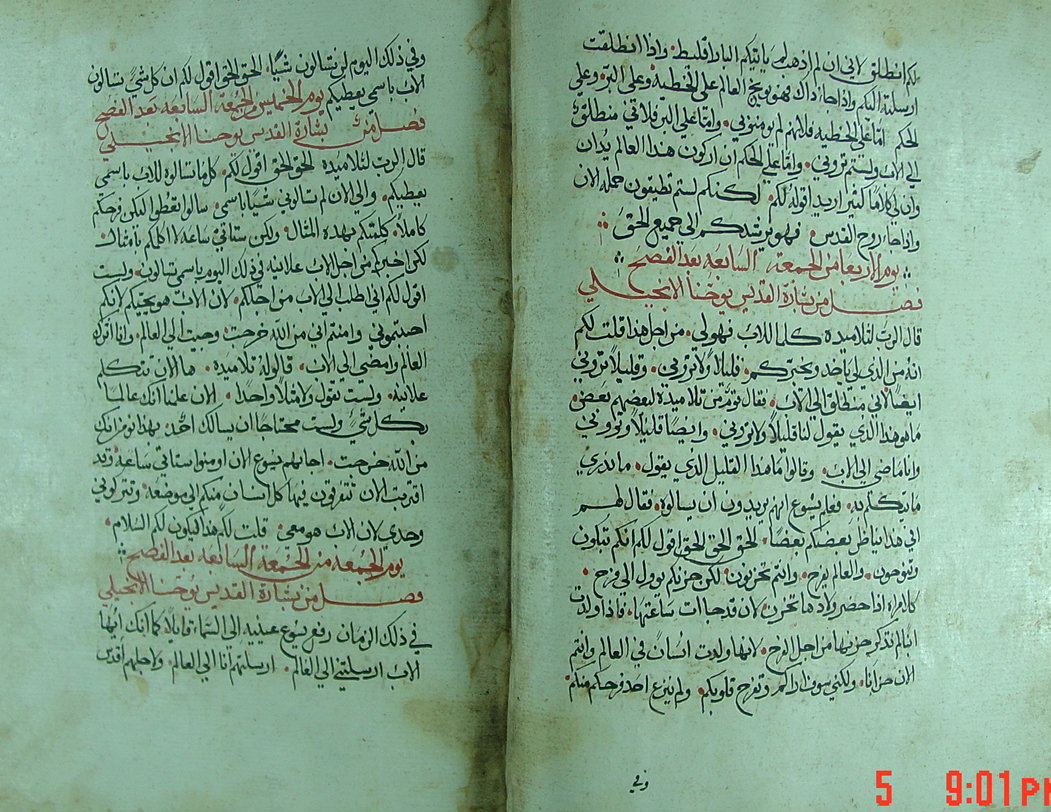 لكم انطلق لاني ان لم اذهب لم ياتيكم البارقليط. واذا انطلقت
ارسلته اليكم واذا جا ذاك فهو يوبخ العالم على الخطيه وعلى البر وعلى
الحكم اما على الخطيه فلانهم لم يومنو بي. واما على البر فلاني منطلق
الى الاب ولستم تروني. واما على الحكم ان اركون هذا العالم يدان
وان لي كلاما كثير اريد اقوله لكم. لكنكم لستم تطيقون حمله الان
واذا جا روح القدس. فهو يرشدكم الى جميع الحق
يوم الاربعا من الجمعه السابعه بعد الفصح
فصل من بشارة القديس يوحنا الانجيلي
قال الرب لتلاميذه كلما للاب فهو لي. من اجل هذا قلت لكم
انه من الذي لي ياخذ ويخبركم. قليلا ولا تروني. وقليلا تروني
ايضا لاني منطلق الى الاب. فقال قوم من تلاميذه لبعضهم بعض
ما هو هذا الذي يقول لنا قليلا ولا تروني. وايضا قليلا وتروني
وانا ماضي الى الاب. وقالوا ما هذا القليل الذي يقول. ما ندري
ما يتكلم به. فعلم يسوع انهم يريدون ان يسالوه فقال لهم
افي هذا يناظر بعضكم بعضا. الحق الحق اقول لكم انكم تبكون
وتنوحون. والعالم يفرح. وانتم تحزنون. لكن حزنكم يوول الى فرح.
كالامراه اذا حضر ولادها تحزن لان قد جات ساعتها. فاذا ولدت
ابنا لم تذكر حزنها من اجل الفرح. لانها ولدت انسان في العالم وانتم
الان حزانا. ولكني سوف اراكم وتفرح قلوبكم. ولم ينزع احد فرحكم منكم
وفي
وفي ذلك اليوم لن تسالون شيا. الحق الحق اقول لكم ان كل شي تسالون
الاب باسمي يعطيكم يوم الخميس من الجمعه السابعه بعد الفصح
فصل من بشارة القديس يوحنا الانجيلي
قال الرب لتلاميذه الحق الحق اقول لكم. كلما تسالوه للاب باسمي
يعطيكم. والى الان لم تسالوني شيا باسمي. سالوا تعطوا لكى فرحكم
كاملا. كلمتكم بهذه المثال. ولكن ستاتي ساعه لا اكلمكم بامثال
لكن اخبركم من اجل الاب علانيه في ذلك اليوم باسمي تسالون. ولست
اقول لكم اني اطلب الى الاب من اجلكم. لان الاب هو يحبكم لانكم
احبتموني وامنتم اني من الله خرجت. وجيت الى العالم. وانا اترك
العالم وامضي الى الاب. قالو له تلاميذه. ها الان تتكلم
علانيه. ولست تقول ولا مثلا واحدا. الان علمنا انك عالما
بكل شي. ولست محتاجا ان يسالك احد. بهذا نومن انك
من الله خرجت. اجابهم يسوع الان اومنوا ستاتي ساعه وقد
اقتربت الان تتفرقون فيها كل انسان منكم الى موضعه. وتتركوني
وحدي لان الاب هو معي. قلت لكم هذا ليكون لكم السلام.
يوم الجمعه من الجمعه السابعه بعد الفصح
فصل من بشارة القديس يوحنا الانجيلي
في ذلك الزمان رفع يسوع عينيه الى السما قايلا كما انك ايها
الاب ارسلتني الى العالم. ارسلتهم انا الى العالم. ولاجلهم اقدس
5 9:01 PM